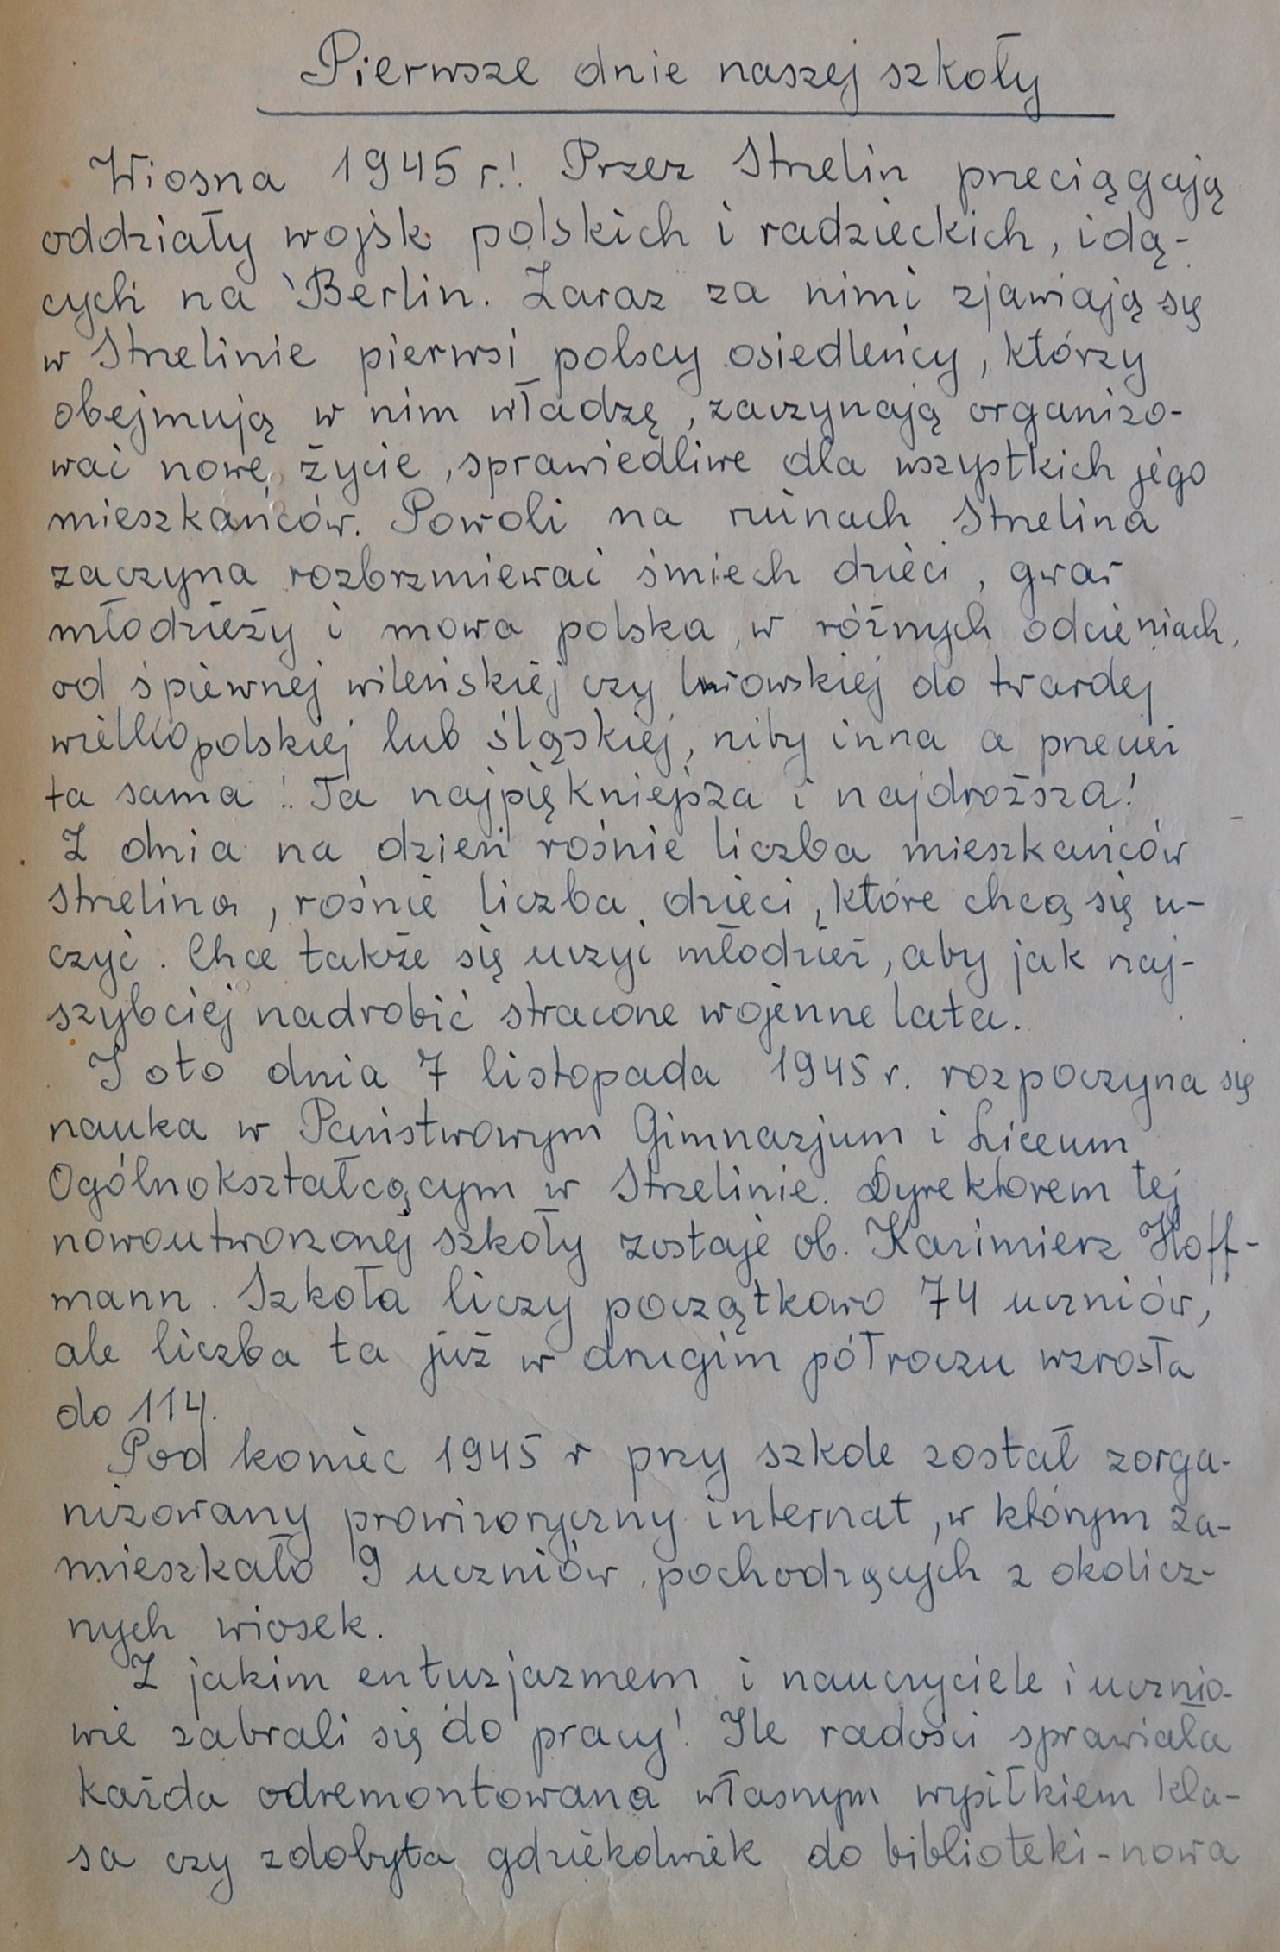 Pierwsze dnie naszej szkoły
Wiosna 1945 r.! Przez Strzelin przeciągają
oddziały wojsk polskich i radzieckich, idą-
cych na Berlin. Zaraz za nimi zjawiają się
w Strzelinie pierwsi polscy osiedleńcy, którzy
obejmują w nim władzę, zaczynają organizo-
wać nowe życie, sprawiedliwe dla wszystkich jego
mieszkańców. Powoli na ruinach Strzelina
zaczyna rozbrzmiewać śmiech dzieci, gwar
młodzieży i mowa polska w różnych odcieniach,
od śpiewnej wileńskiej czy lwowskiej do twardej
wielkopolskiej lub śląskiej, niby inna a przecież
ta sama! Ta najpiękniejsza i najdroższa!
Z dnia na dzień rośnie liczba mieszkańców
Strzelina, rośnie liczba dzieci, które chcą się u-
czyć. Chce także się uczyć młodzież, aby jak naj-
szybciej nadrobić stracone wojenne lata.
I oto dnia 7 listopada 1945 r. rozpoczyna się
nauka w Państwowym Gimnazjum i Liceum
Ogólnokształcącym w Strzelinie. Dyrektorem tej
nowoutworzonej szkoły zostaje ob. Kazimierz Hoff-
mann. Szkoła liczy początkowo 74 uczniów,
ale liczba ta już w drugim półroczu wzrosła
do 114.
Pod koniec 1945 r przy szkole został zorga-
nizowany prowizoryczny internat, w którym za-
mieszkało 9 uczniów pochodzących z okolicz-
nych wiosek.
Z jakim entuzjazmem i nauczyciele i ucznio-
wie zabrali się do pracy! Ile radości sprawiała
każda odremontowana własnym wysiłkiem kla-
sa czy zdobyta gdziekolwiek do biblioteki - nowa